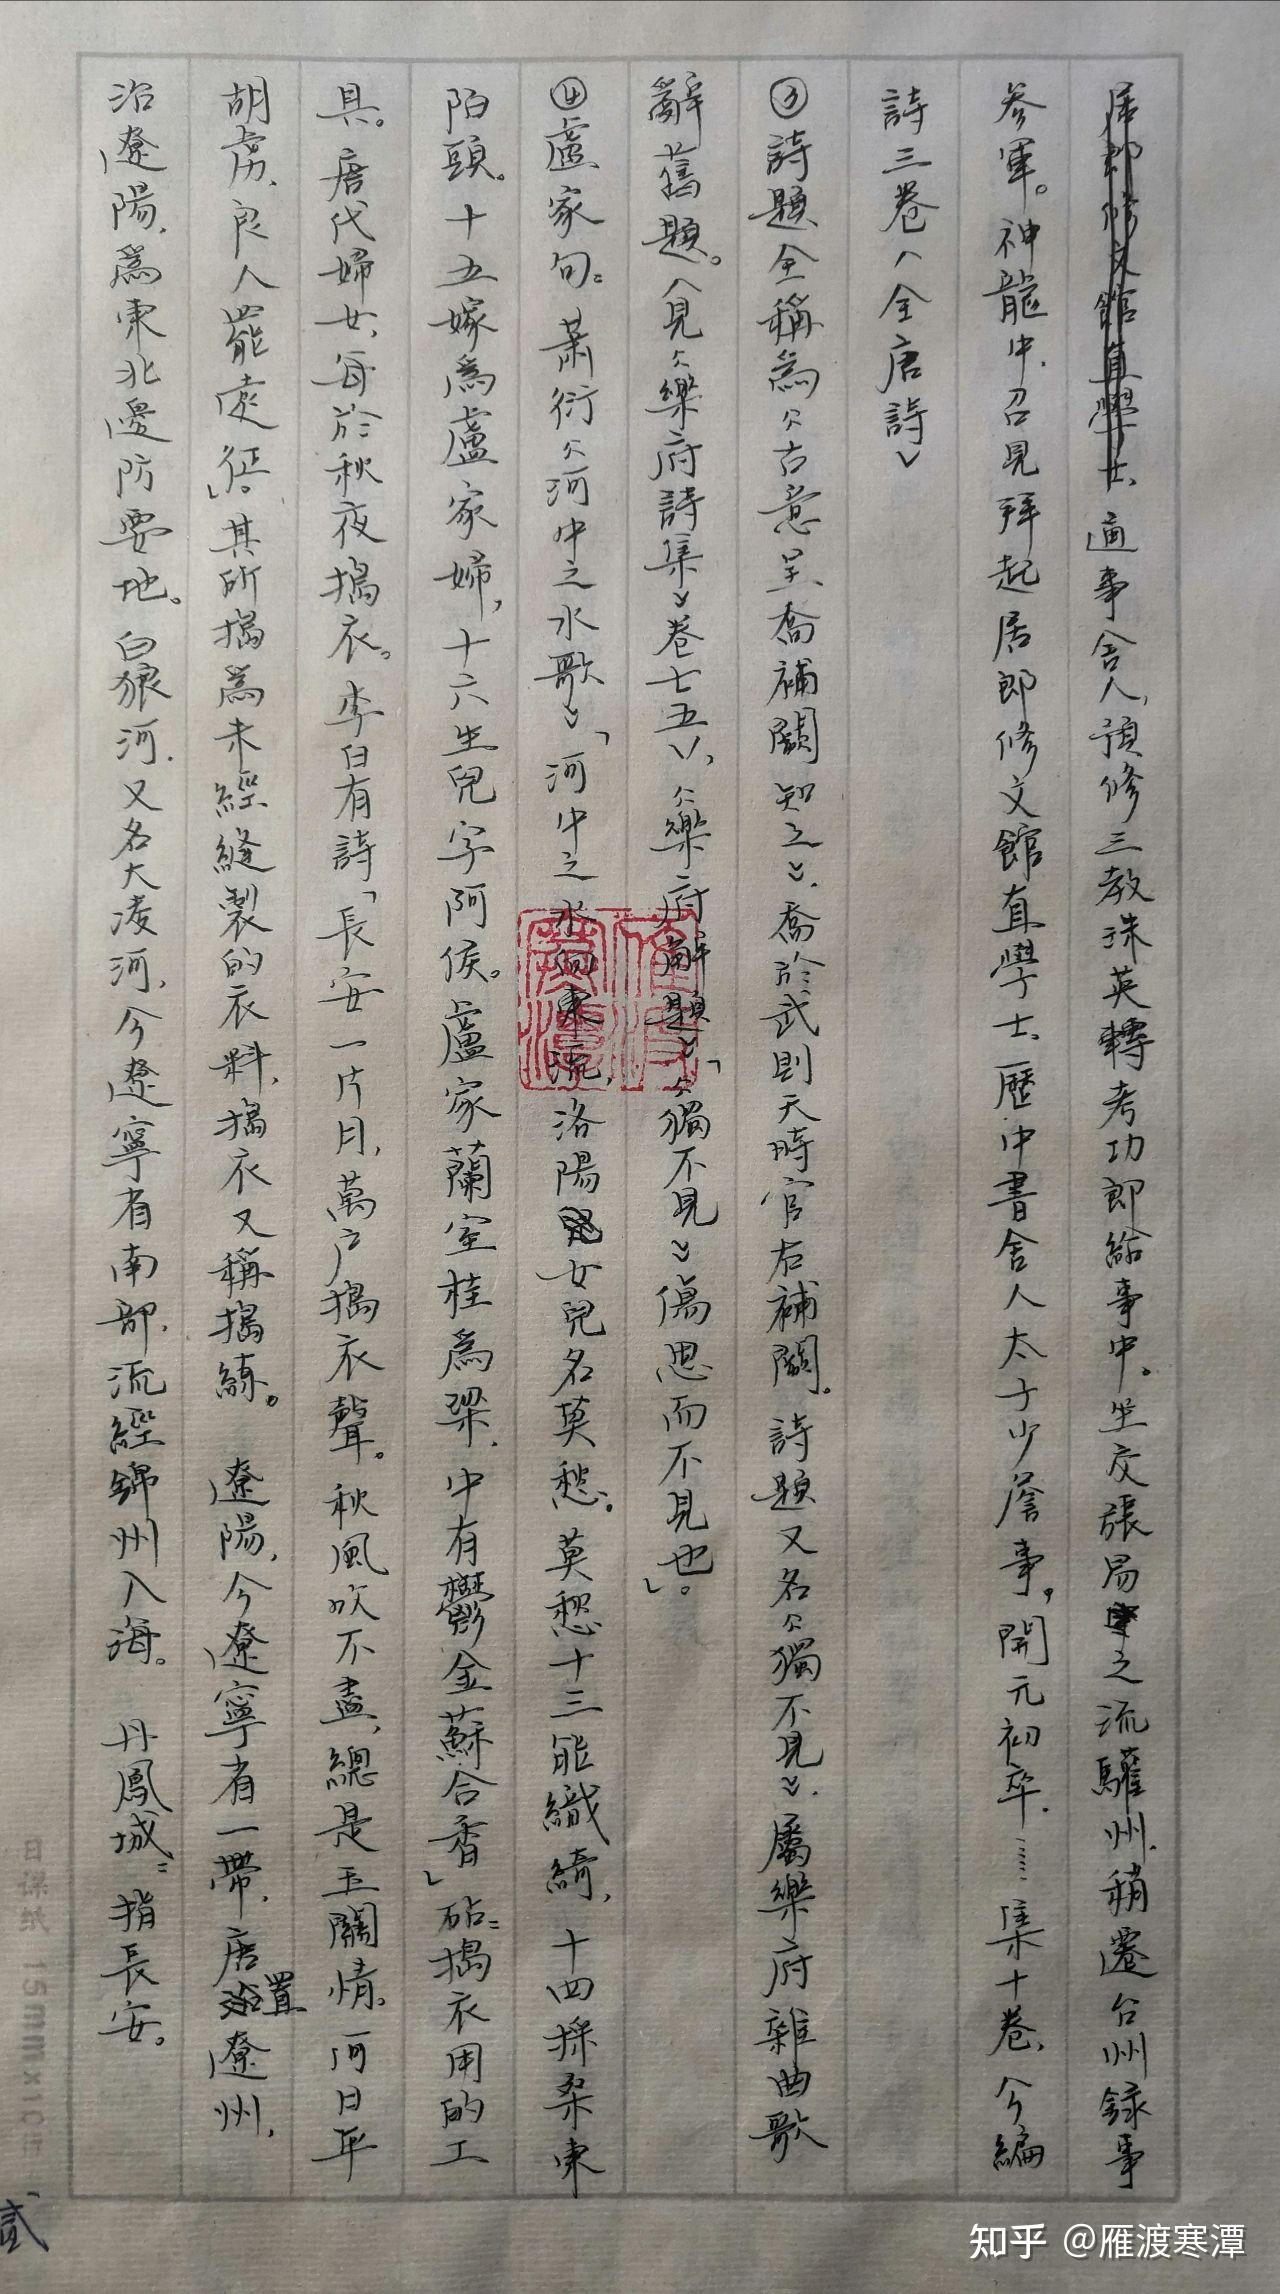 居郎修文館直學士、通事舍人，預修三教珠英轉考功郎給事中。坐交張易之流驩州。稍遷台州錄事
參軍。神龍中，召見拜起居郎修文館直學士、歷中書舍人太子少詹事。開元初卒……集十卷，今編
詩三卷〈全唐詩〉
③詩題全稱為《古意呈喬補闕知之》，喬於武則天時官右補闕。詩題又名《獨不見》，屬樂府雜曲歌
辭舊題。〈見《樂府詩集》卷七五〉，《樂府解題》「《獨不見》傷思而不見也」。
④盧家句。蕭衍《河中之水歌》「河中之水向東流，洛陽女兒名莫愁。莫愁十三能織綺，十四採桑東
陌頭。十五嫁爲盧家婦，十六生兒字阿侯。盧家蘭室桂爲梁，中有鬱金蘇合香」砧：搗衣用的工
具。唐代婦女，每於秋夜搗衣。李白有詩「長安一片月，萬户搗衣聲。秋風吹不盡，總是玉關情。何日平
胡虜，良人罷遠征」。其所搗爲未經縫製的衣料，搗衣又稱搗練。 遼陽，今遼寧省一帶，唐置遼州，
治遼陽，爲東北邊防要地。白狼河，又名大凌河，今遼寧省南部，流經錦州入海。 丹鳳城：指長安。
貳
日課紙 15mm×10行
知乎 @雁渡寒潭